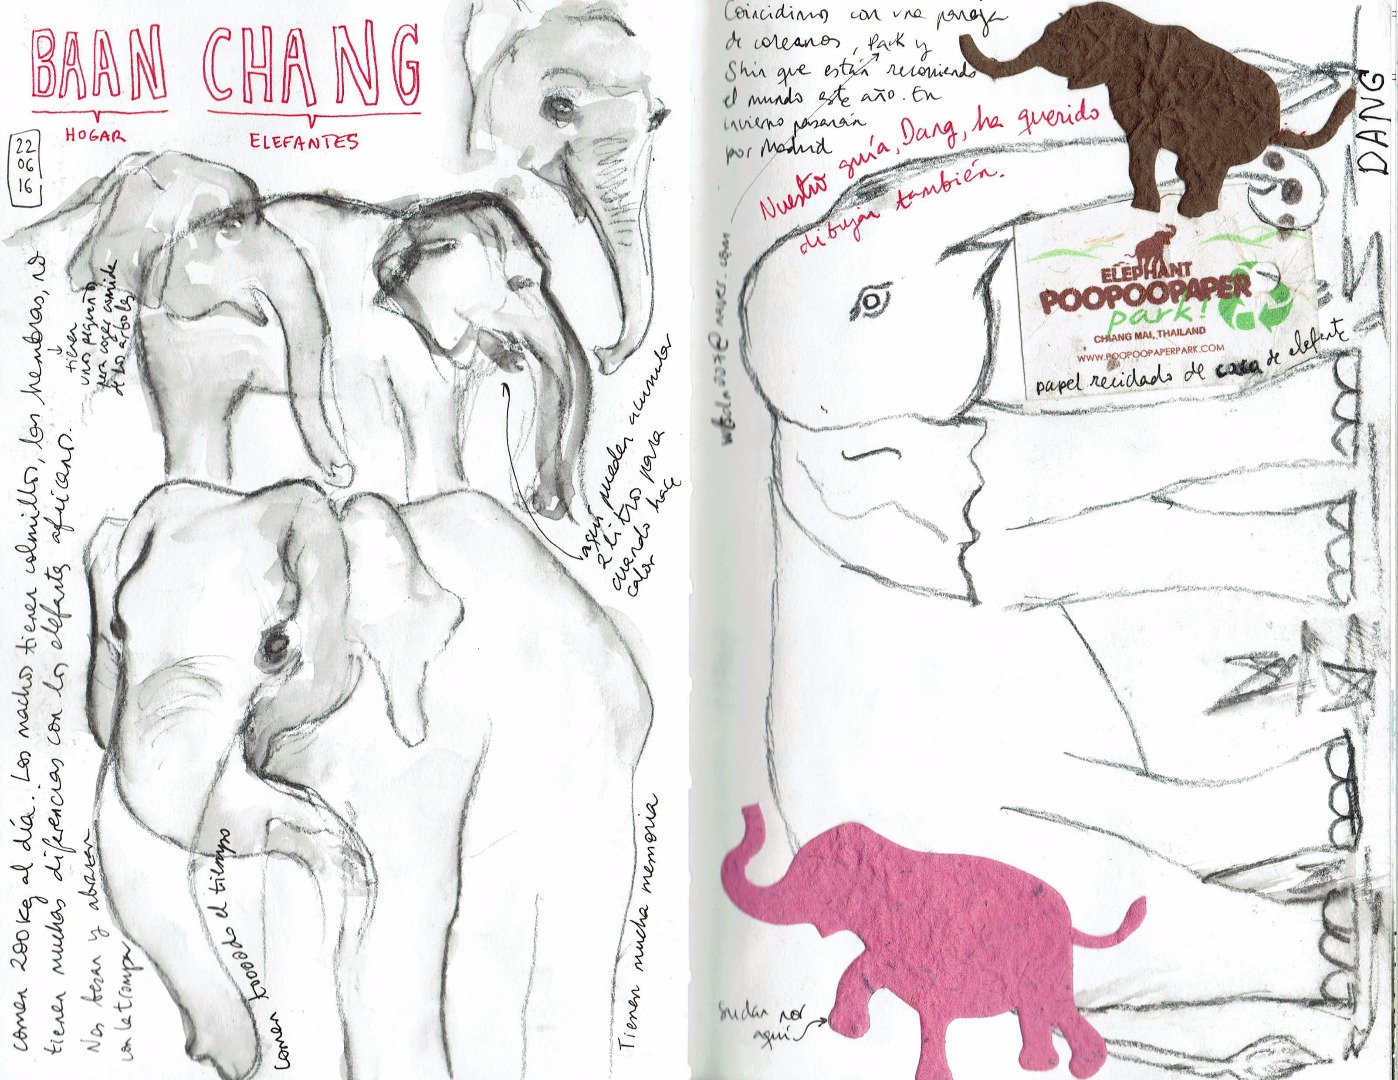 BAAN CHANG
HOGAR
ELEFANTES
22
06
16
comen 200Kg al día. Los machos tienen colmillos, las hembras, no
tienen muchas diferencias con los elefantes africanos.
Nos besan y abrazan
con la trompa
tienen
unos pequeños
para coger comida
de los árboles
aquí pueden acumular
2 litros para
cuando hace
calor
comen tooodo el tiempo
Tienen mucha memoria
Coincidimos con una pareja
de coreanos, Park y
Shin que están recorriendo
el mundo este año. En
invierno pasarán
por Madrid
Nuestro guía, Dang, ha querido
dibujar también.
DANG
ELEPHANT
POOPOOPAPER
park!
CHIANG MAI, THAILAND
WWW.POOPOOPAPERPARK.COM
papel reciclado de caca de elefante
sudan por
aquí